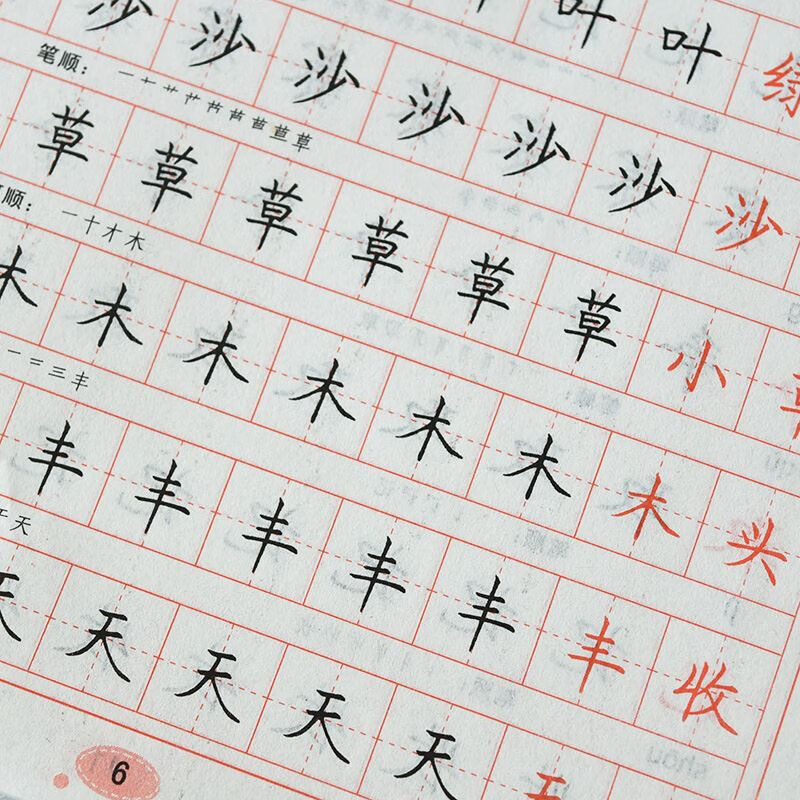 叶叶绿
沙沙沙沙沙沙沙
笔顺：一十艹草
草草草草草草小草
顺：一十才木
木木木木木木木头
一二三丰
丰丰丰丰丰丰收
天
天天天天天
6